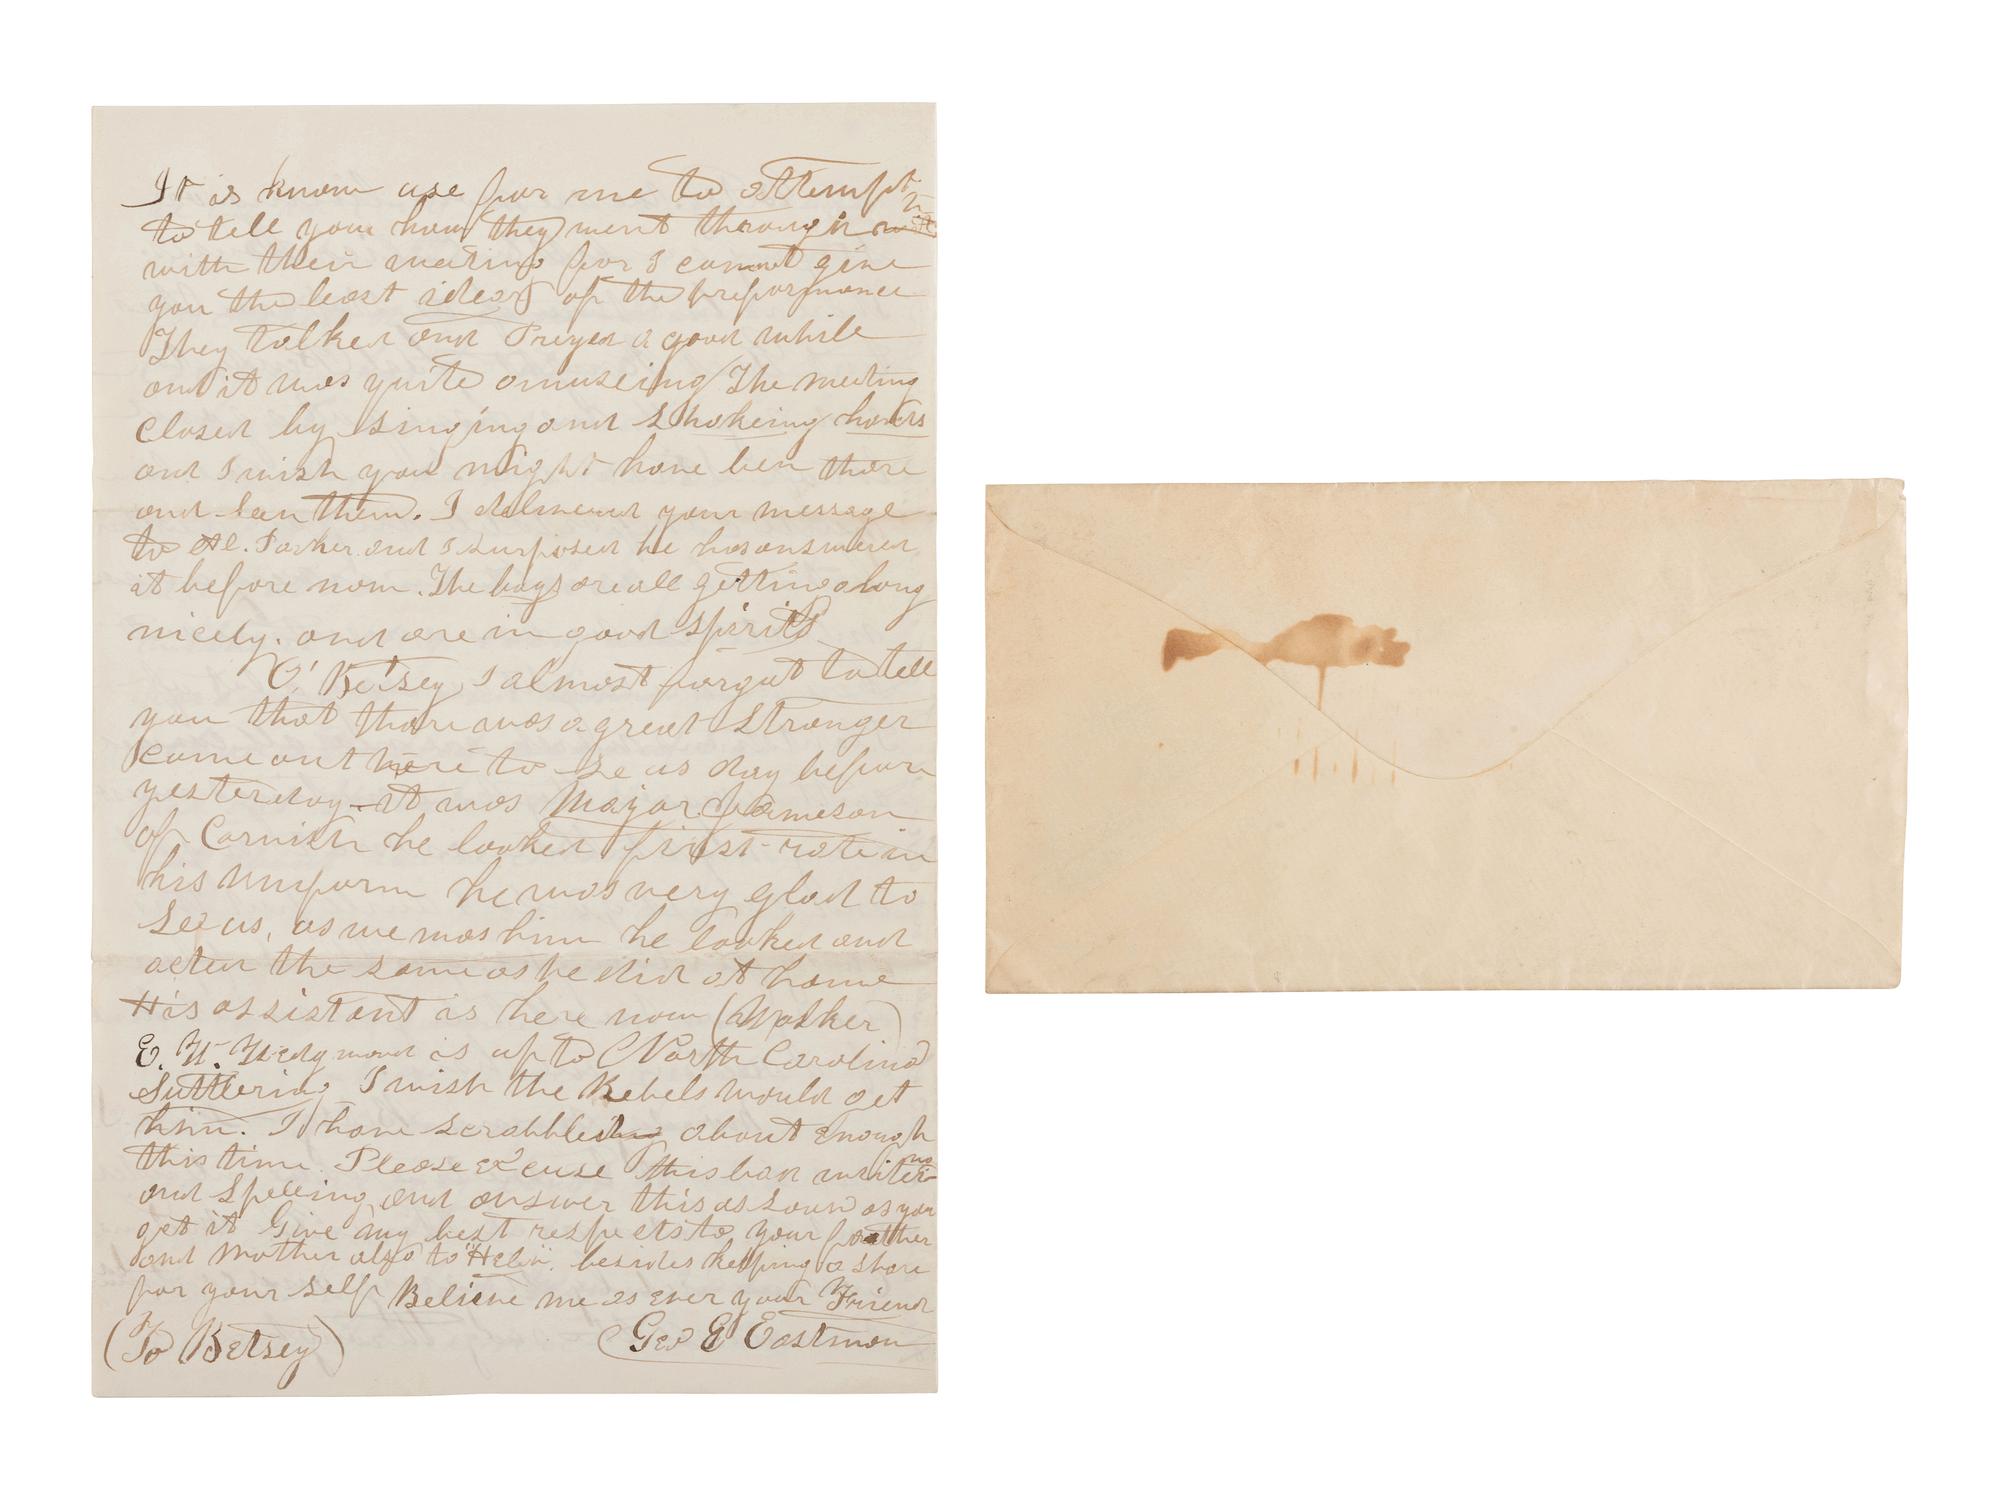 It is know use for me to attempt
to tell you how they went through
with their meeting for I cannot give
you the least idear of the preformance
They talked and Preyed a good while
and it was quite amuseing The meeting
closed by singing and Shakeing hands
and I wish you might have ben thare
and seen them. I delivered your message
to Al. Parker and I surposed he has answered
it before now. The boys are all getting along
nicely. and are in good spirits
O' Betsey I almost forgot to tell
you that thare was a great Stranger
came out here to se us day before
yesterday - it was Major Jameson
of Cornish he looked first-rate in
his uniform he was very glad to
see us, as we was him he looked and
acted the same as he did at home
His assistant is here now (Walker)
E. W. is up to North Carolina
Suttlering I wish the Rebels would get
him. I have scrabbled about enough
this time. Please excuse this bad writeing
and Spelling and answer this as soon as you
get it Give my best respects to your father
and Mother also to "Helin". besides keeping a share
for your self Believe me as ever your Friend
(To Betsey) Geo E Eastman